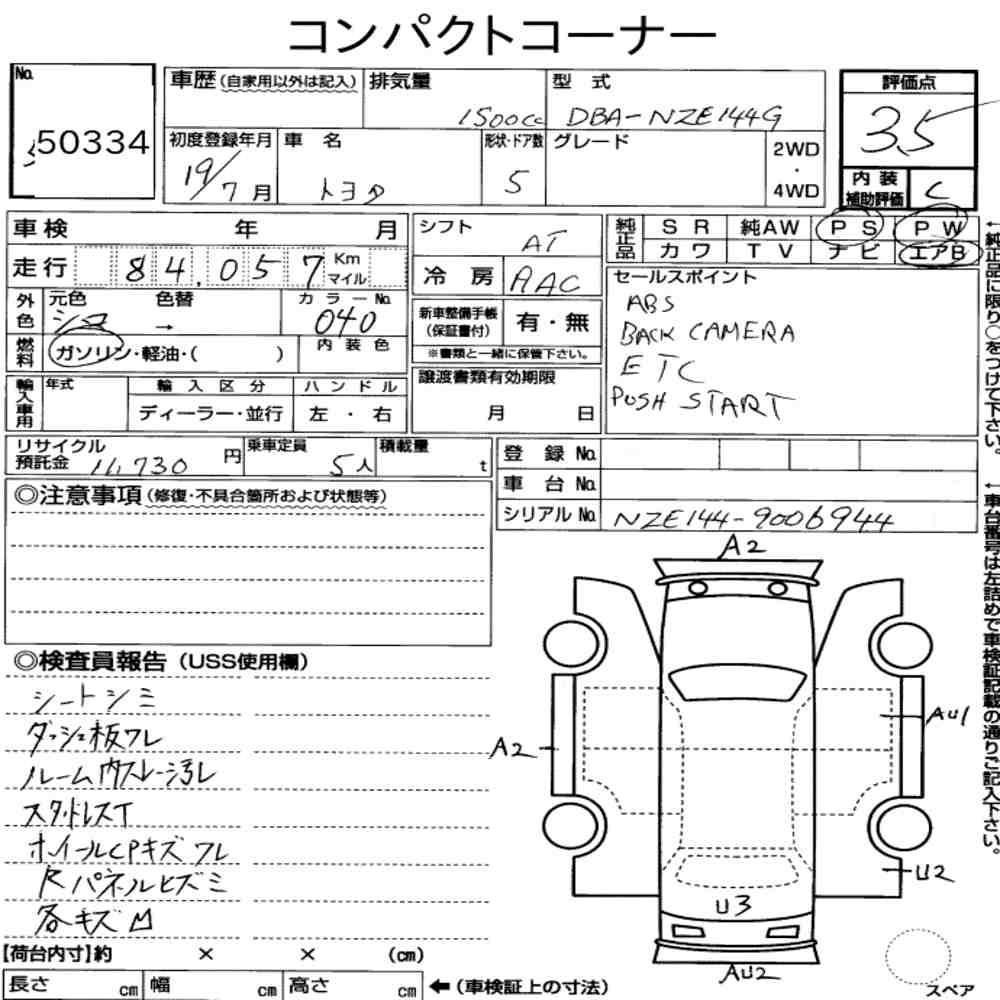 コンパクトコーナー
No. 50334
車歴(自家用以外は記入)
排気量 1500cc
型式 DBA-NZE144G
評価点 3.5
初度登録年月 19/7月
車名 トヨタ
形状・ドア数 5
グレード
2WD・4WD
内装補助評価 C
車検 年 月
シフト AT
純正品 SR 純AW PS PW
カワ TV ナビ エアB
走行 84,057 Km マイル
冷房 AAC
セールスポイント
ABS
BACK CAMERA
ETC
PUSH START
外色 元色 シロ 色替 → カラーNo. 040
新車整備手帳(保証書付) 有・無
※書類と一緒に保管下さい。
燃料 ガソリン・軽油・( ) 内装色
譲渡書類有効期限
月 日
輸入車用 年式 輸入区分 ハンドル
ディーラー・並行 左・右
リサイクル預託金 11,730円
乗車定員 5人
積載量 t
登録No.
車台No.
シリアルNo. NZE144-9006944
←純正品に限り○をつけて下さい。
←車台番号は左詰めで車検証記載の通りご記入下さい。
◎注意事項(修復・不具合箇所および状態等)
◎検査員報告(USS使用欄)
シートシミ
ダッシュ板ワレ
ルーム内スレ汚レ
スタッドレスT
ホイールCPキズワレ
Rパネルヒズミ
各キズ凹
A2
A2
AU1
U2
U3
AU2
【荷台内寸】約 × × (cm)
長さ cm 幅 cm 高さ cm ←(車検証上の寸法)
スペア